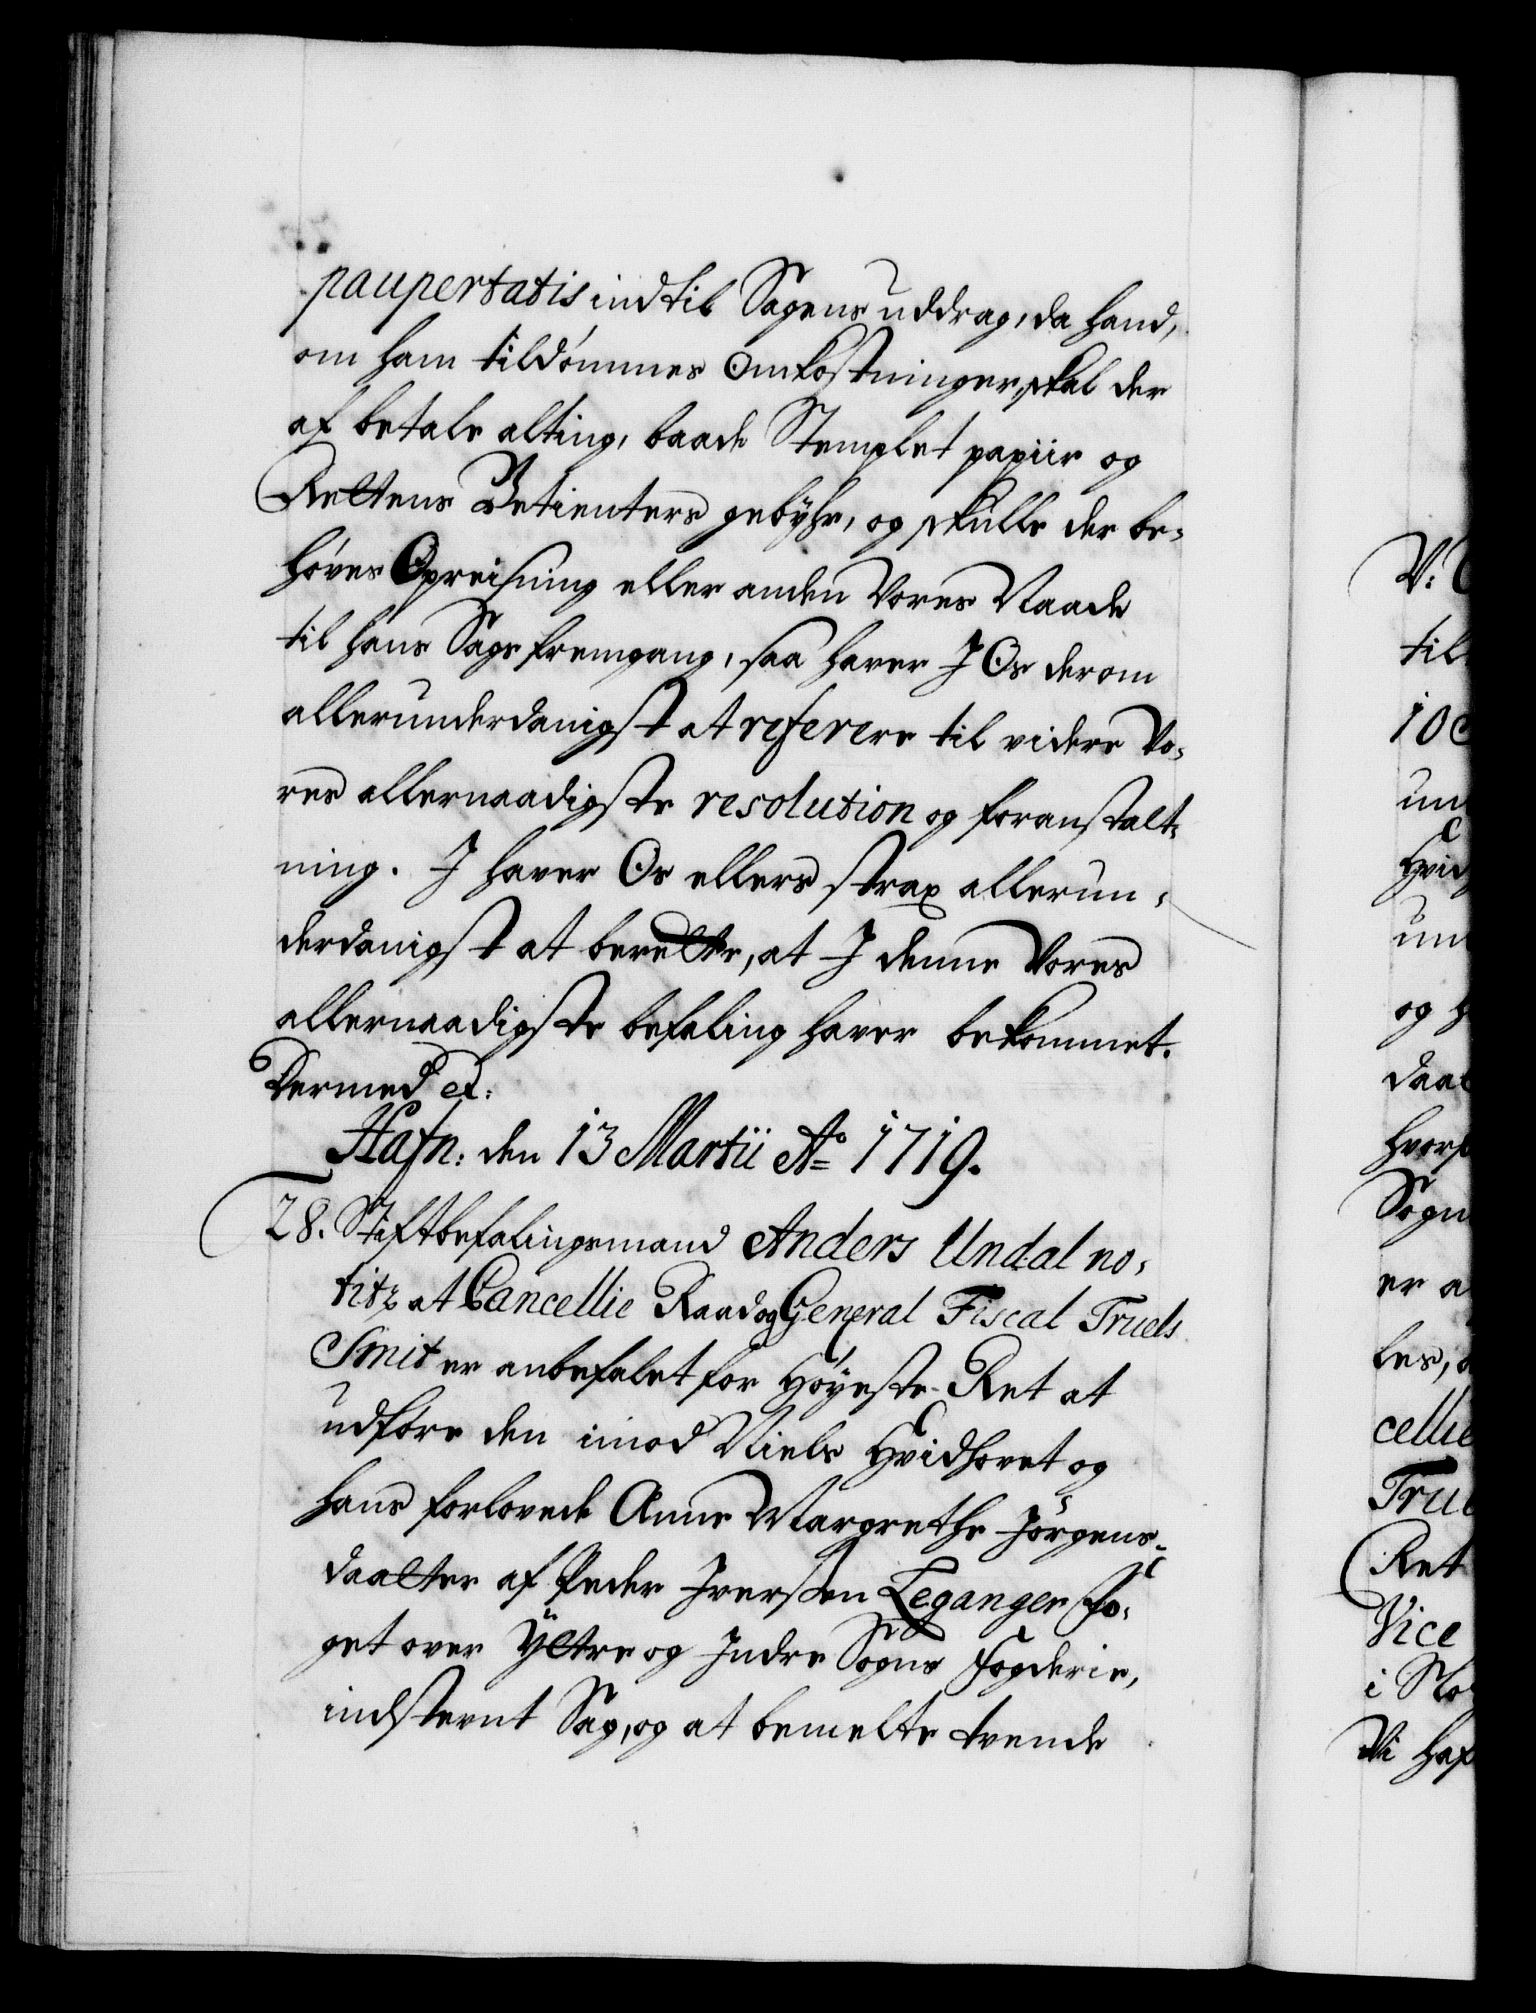 paupertatis indtil Sagens uddrag, da hand,
om ham tildömmes Omkostninger, skal der
af betale alting, baade Stemplet papiir og
Rettens Betienters gebyhr, og skulle der be-
höves Opreisning eller anden Vores Naade
til hans Sags fremgang, saa haver J Os derom
allerunderdanigst at referere til videre Vo-
res allernaadigste resolution og foranstalt-
ning. J haver Os ellers strax allerun-
derdanigst at berette, at J denne Vores
allernaadigste befaling haver bekommet.
Dermed et:
Hafn: den 13 Martii Ao 1719.
28. Stiftbefalingsmand Anders Undal no-
titz at Cancellie Raad og General Fiscal Truels
Smit er anbefalet for Höyeste-Ret at
udföre den imod Niels Hvidhovet og
hans forlovede Anne Margrethe Jörgens-
daatter af Peder Jverssen Leganger Fo-
get over Yttre og Jndre Sogns Fogderie,
indstevnt Sag, og at bemelte tvende
V:
til
10
un
Hvid
un
og h
daat
hvors
Sogn
er a
les,
cellie
Truel
Ret
Vice
i Sto
Vi haf